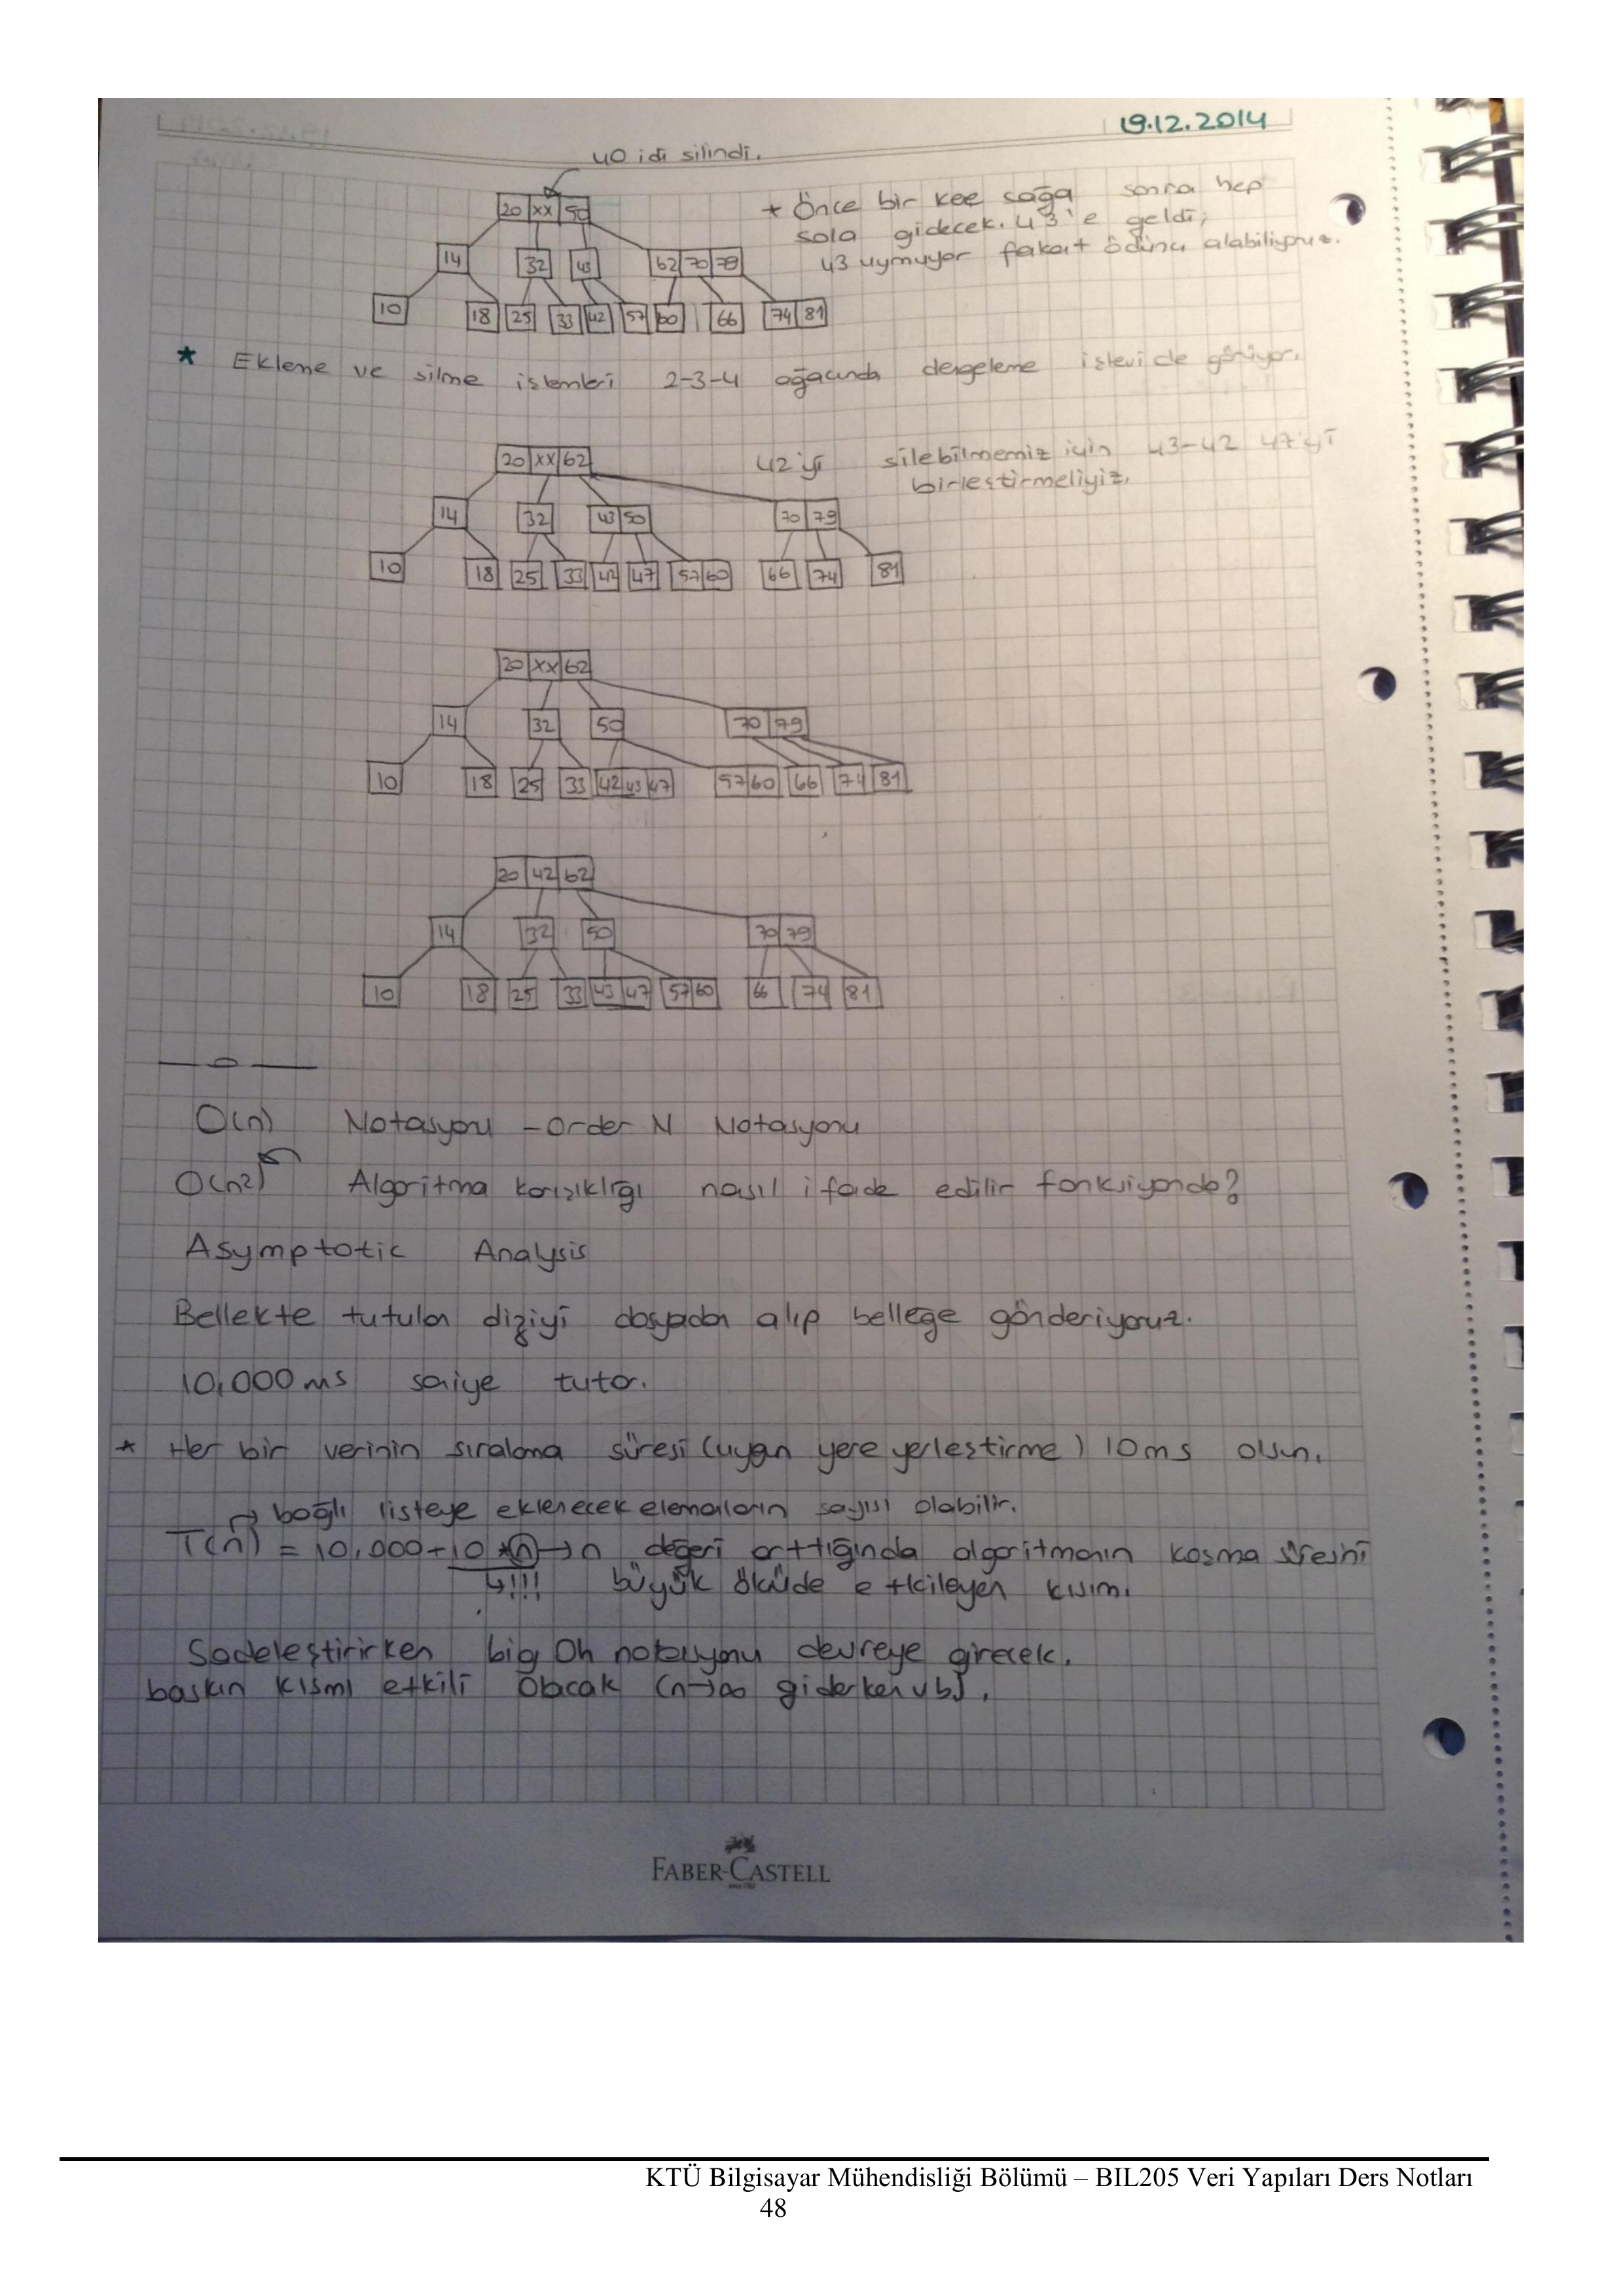 19.12.2014
40 idi silindi.
20 xx 50
* Önce bir kee sağa sonra hep
sola gidecek. 43'e geldi;
43 uymuyor fakat ödünç alabiliyoruz.
14 32 43 62 70 79
10 18 25 33 42 57 60 66 74 81
* Ekleme ve silme işlemleri 2-3-4 ağacında dengeleme işlevi de görüyor.
20 xx 62
42'yi silebilmemiz için 43-42 47'yi
birleştirmeliyiz.
14 32 43 50 70 79
10 18 25 33 42 47 57 60 66 74 81
20 xx 62
14 32 50 70 79
10 18 25 33 42 43 47 57 60 66 74 81
20 42 62
14 32 50 70 79
10 18 25 33 43 47 57 60 66 74 81
O(n) Notasyonu - Order N Notasyonu
O(n2) Algoritma karışıklığı nasıl ifade edilir fonksiyonda?
Asymptotic Analysis
Bellekte tutulan diziyi dosyadan alıp belleğe gönderiyoruz.
10,000 ms saniye tutar.
* Her bir verinin sıralama süresi (uygun yere yerleştirme) 10 ms olsun.
→ bağlı listeye eklenecek elemanların sayısı olabilir.
T(n) = 10,000+10*n → n değeri arttığında algoritmanın koşma süresini
↳!!! büyük ölçüde etkileyen kısım.
Sadeleştirirken big Oh notasyonu devreye girecek.
baskın kısmı etkili olacak (n→∞ giderken vb).
FABER-CASTELL
since 1761
KTÜ Bilgisayar Mühendisliği Bölümü – BIL205 Veri Yapıları Ders Notları
48